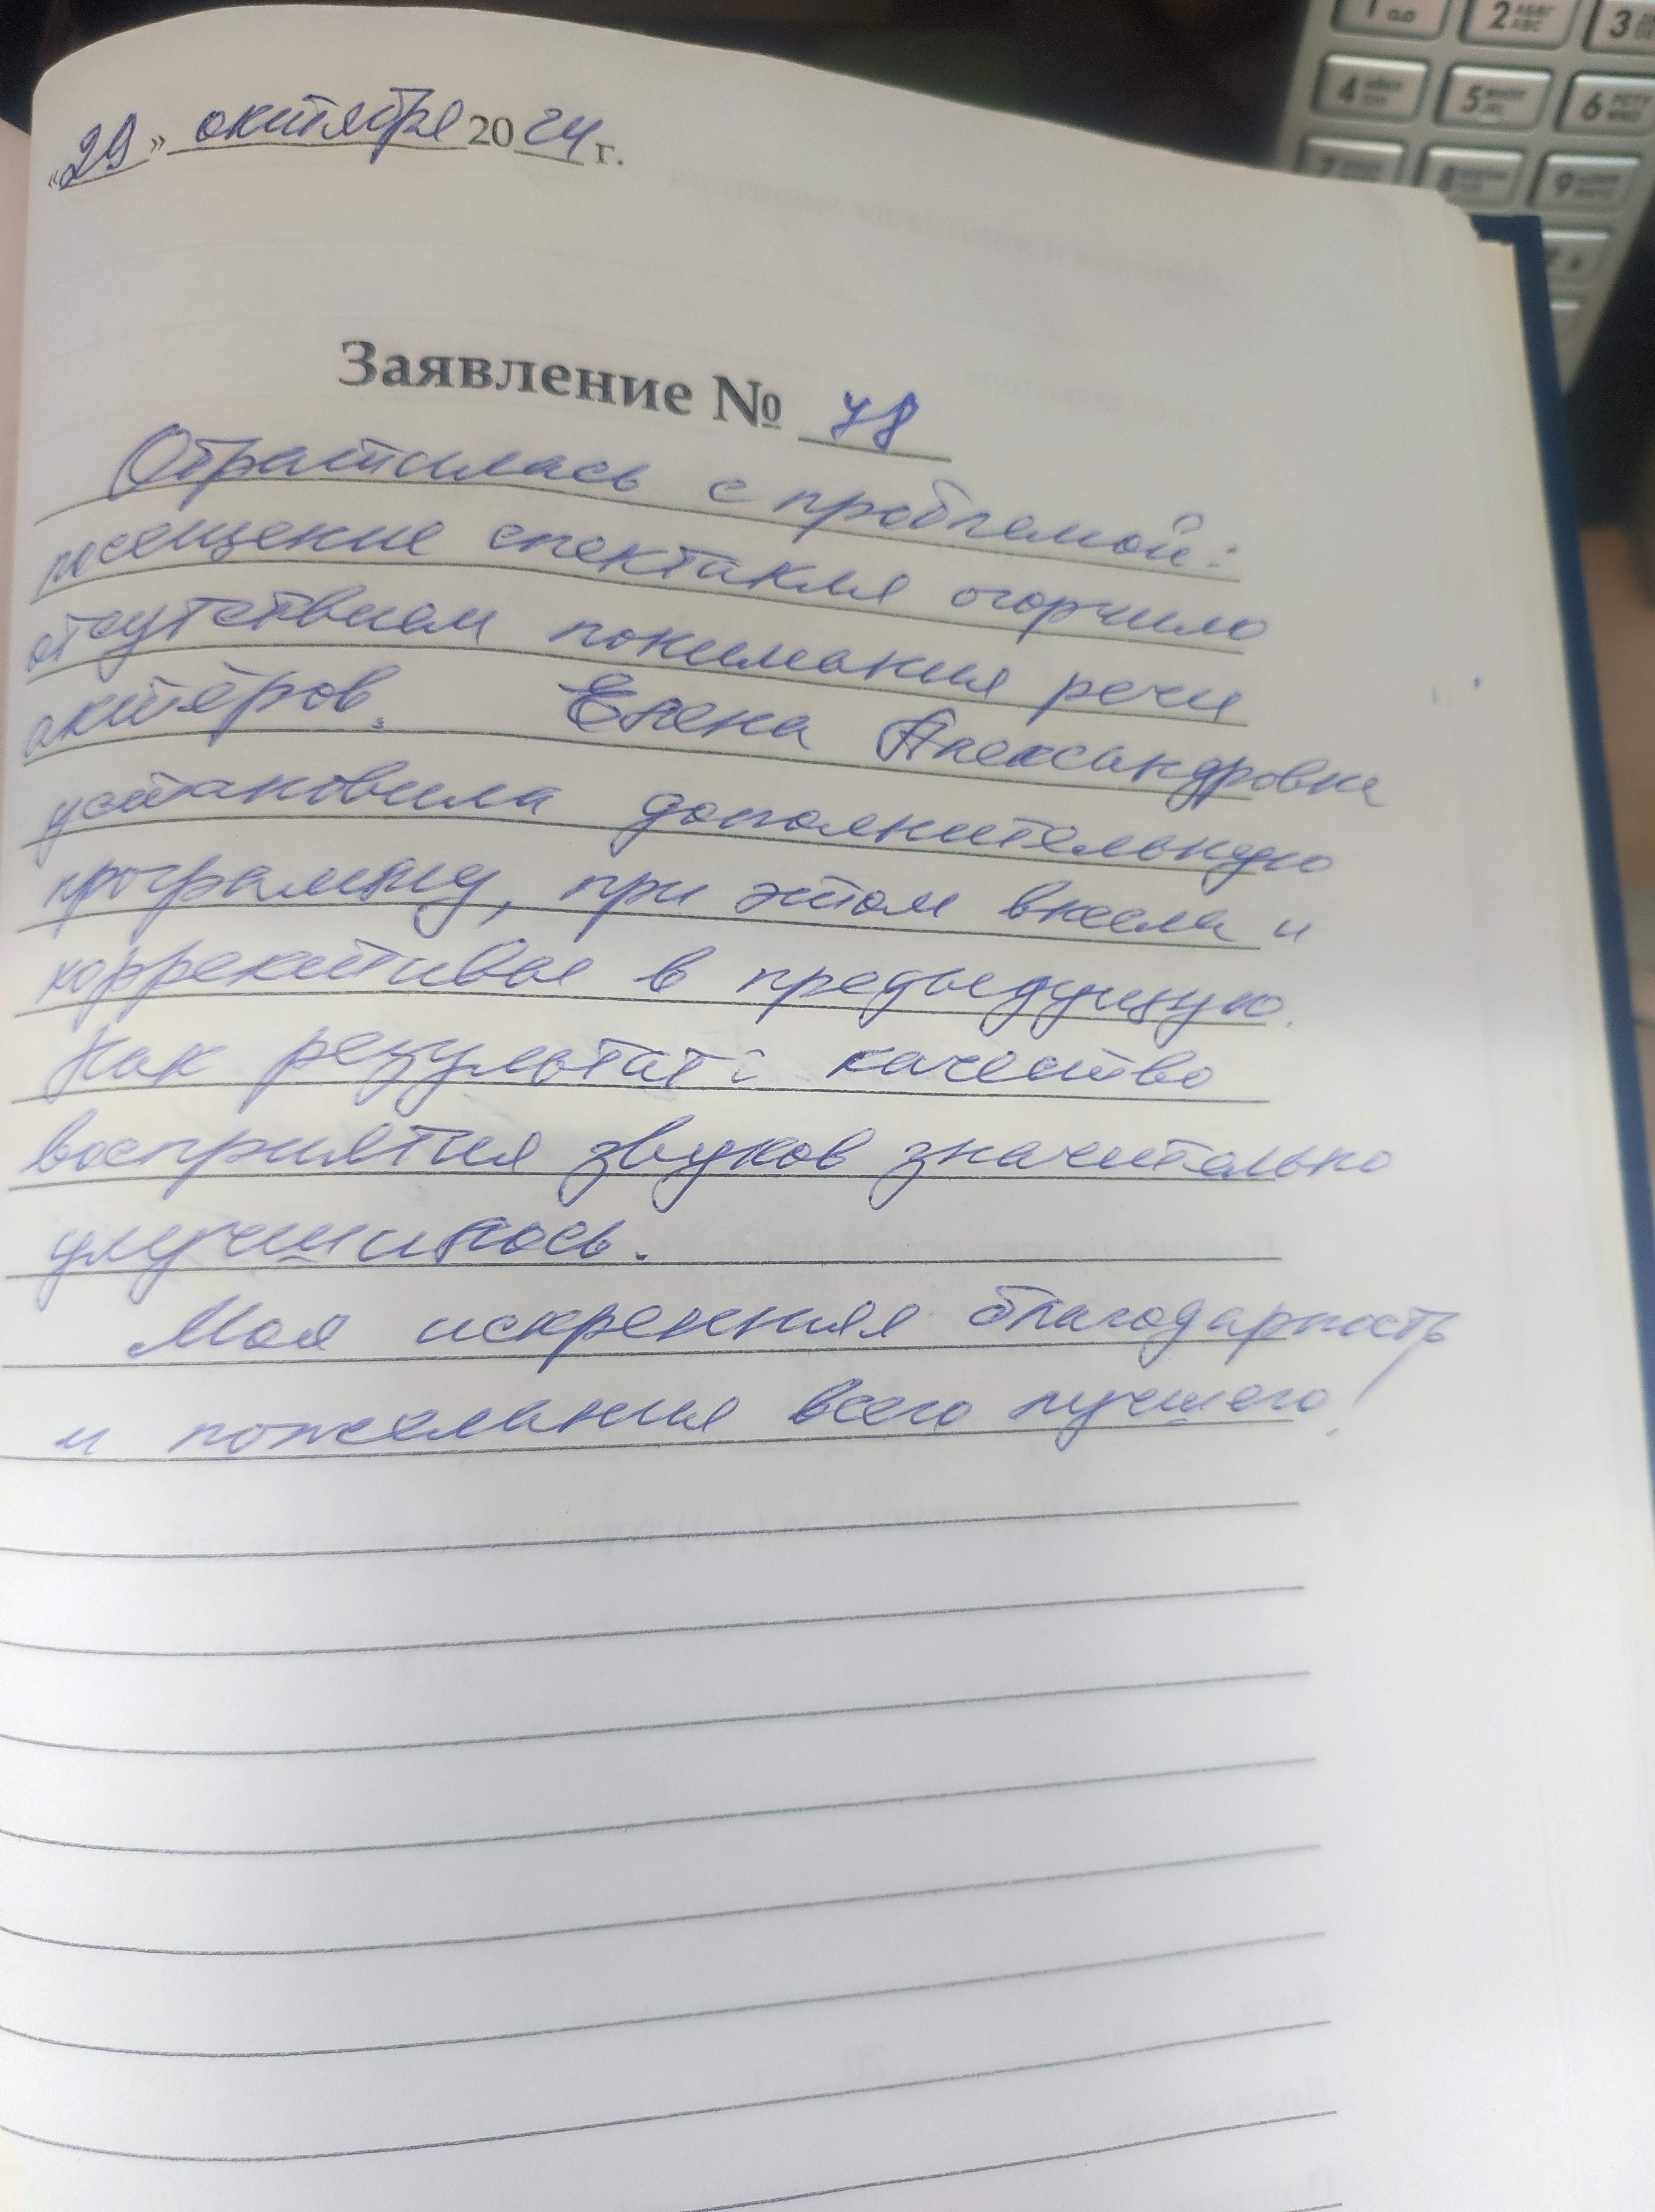 «29» октября 2024 г.
Заявление № 78
Обратилась с проблемой:
посещение спектакля огорчило
отсутствием понимания речи
актёров. Елена Александровна
установила дополнительную
программу, при этом внесла и
коррективы в предыдущую.
Как результат: качество
восприятия звуков значительно
улучшилось.
Моя искренняя благодарность
и пожелания всего лучшего!
1
2 АБВГ ABC
3
4
5
6
7
8
9